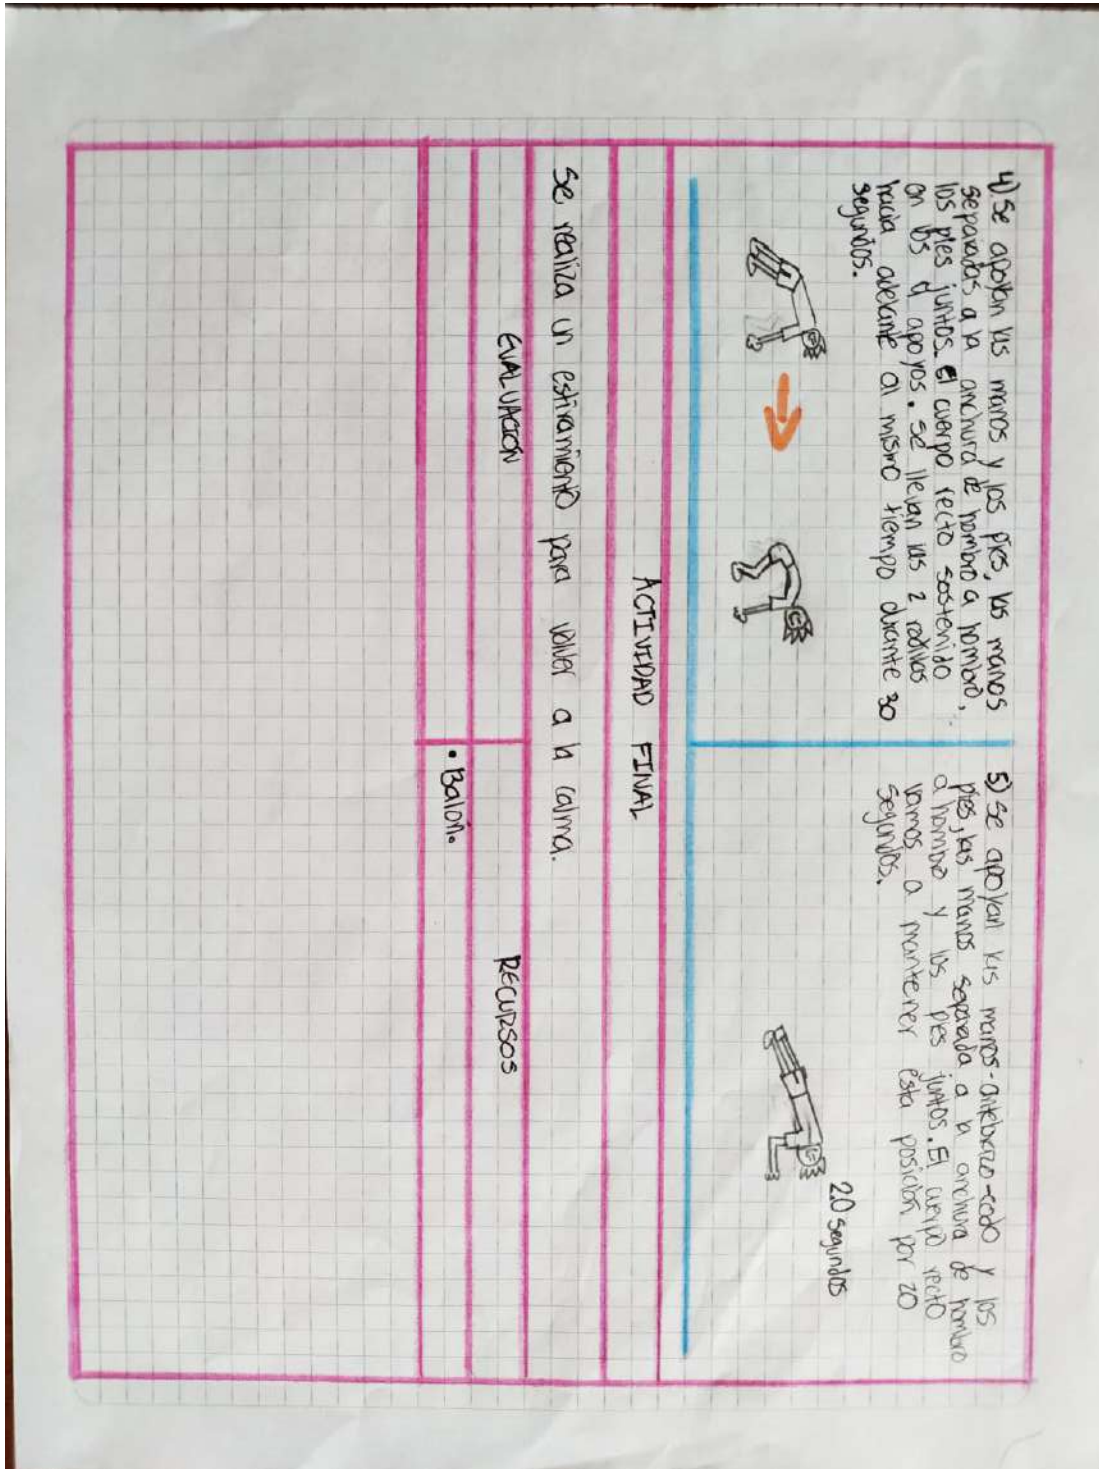 4) Se apoyan las manos y los pies, las manos
separadas a la anchura de hombro a hombro,
los pies juntos. El cuerpo recto sostenido
en los 4 apoyos. Se llevan las 2 rodillas
hacia adelante al mismo tiempo durante 30
segundos.
5) Se apoyan las manos-antebrazo-codo y los
pies, las manos separada a la anchura de hombro
a hombro y los pies juntos. El cuerpo recto
vamos a mantener esta posición por 20
segundos.
20 segundos
ACTIVIDAD FINAL
Se realiza un estiramiento para volver a la calma.
EVALUACIÓN
RECURSOS
• Balón.